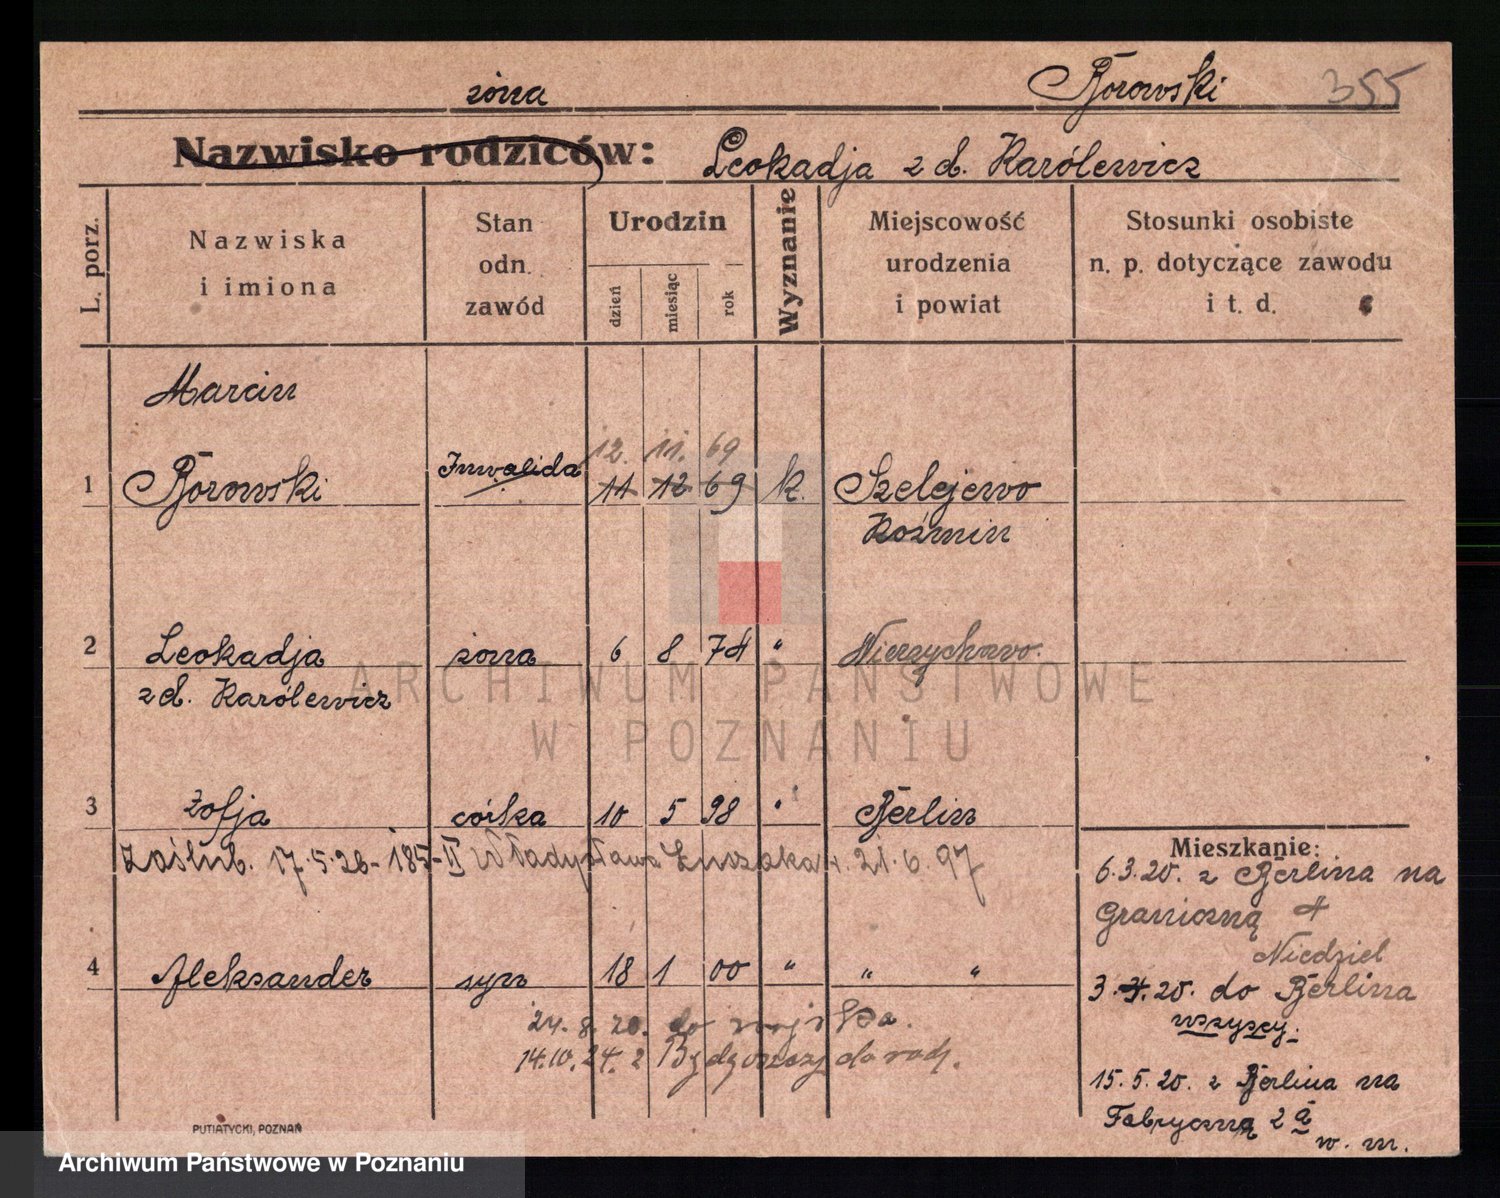 żona
Borowski 355
Nazwisko rodziców: Leokadja z d. Karólewicz
L. porz.
Nazwiska
i imiona
Stan
odn.
zawód
Urodzin
dzień
miesiąc
rok
Wyznanie
Miejscowość
urodzenia
i powiat
Stosunki osobiste
n. p. dotyczące zawodu
i t. d.
Marcin
12. 11. 69
1 Borowski Inwalida 11 12 69 k. Szelejewo
Koźmin
2 Leokadja żona 6 8 74 " Nierzychowo.
z d. Karólewicz
3 Zofja córka 10 5 98 " Berlin
Zaślub. 17.5.26 - 185-II Władysława 21.6.97
4 Aleksander syn 18 1 00 " " "
24.8.20. do wojska.
14.10.24. z Bydgoszczy do rodz.
Mieszkanie:
6.3.20. z Berlina na
Graniczną 4
Niedziel
3.4.20. do Berlina
wszyscy.
15.5.20. z Berlina na
Fabryczną 2 a
w. m.
PUTIATYCKI, POZNAŃ
ARCHIWUM PAŃSTWOWE
W POZNANIU
Archiwum Państwowe w Poznaniu